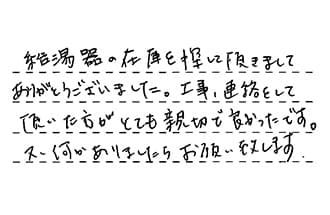 給湯器の在庫を探して頂きまして
ありがとうございました。工事、連絡をして
頂いた方がとても親切で良かったです。
又、何かありましたらお願い致します。